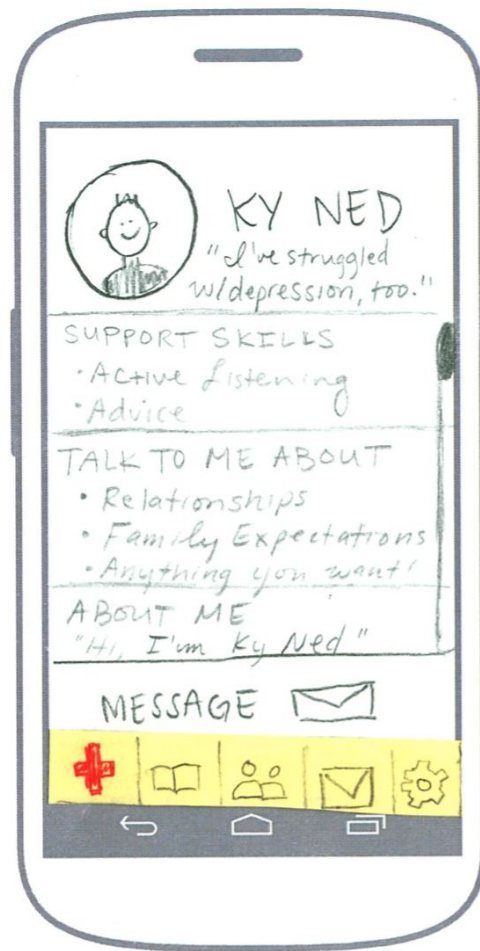 KY NED
"I've struggled
w/depression, too."
SUPPORT SKILLS
• Active Listening
• Advice
TALK TO ME ABOUT
• Relationships
• Family Expectations
• Anything you want!
ABOUT ME
"Hi, I'm Ky Ned"
MESSAGE